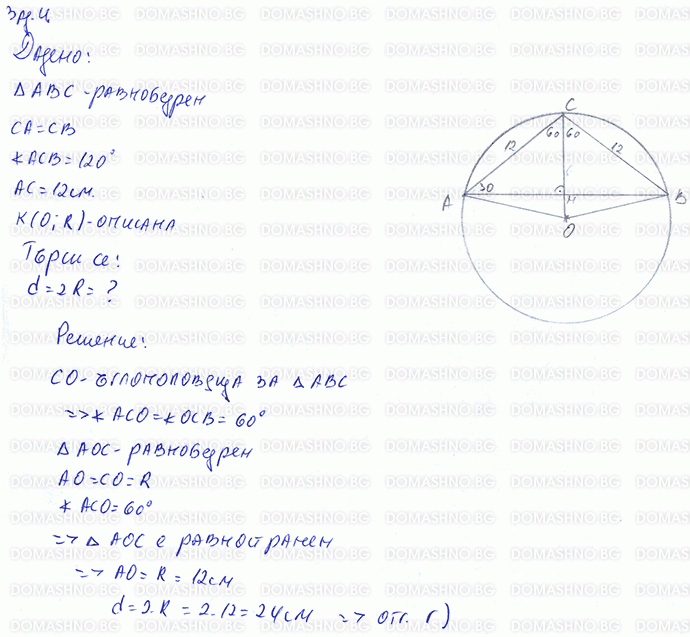 зад. 4
Дадено:
△ABC - равнобедрен
CA=CB
∢ACB=120°
AC=12см.
K(O; R) - описана
Търси се:
d=2R=?
Решение:
CO - ъглополовяща за △ABC
=> ∢ACO=∢OCB=60°
△AOC - равнобедрен
AO=CO=R
∢ACO=60°
=> △AOC е равностранен
=> AO=R=12см
d=2.R=2.12=24см => отг. г)
C
60 60
12 12
A 30 H B
O
DOMASHNO.BG